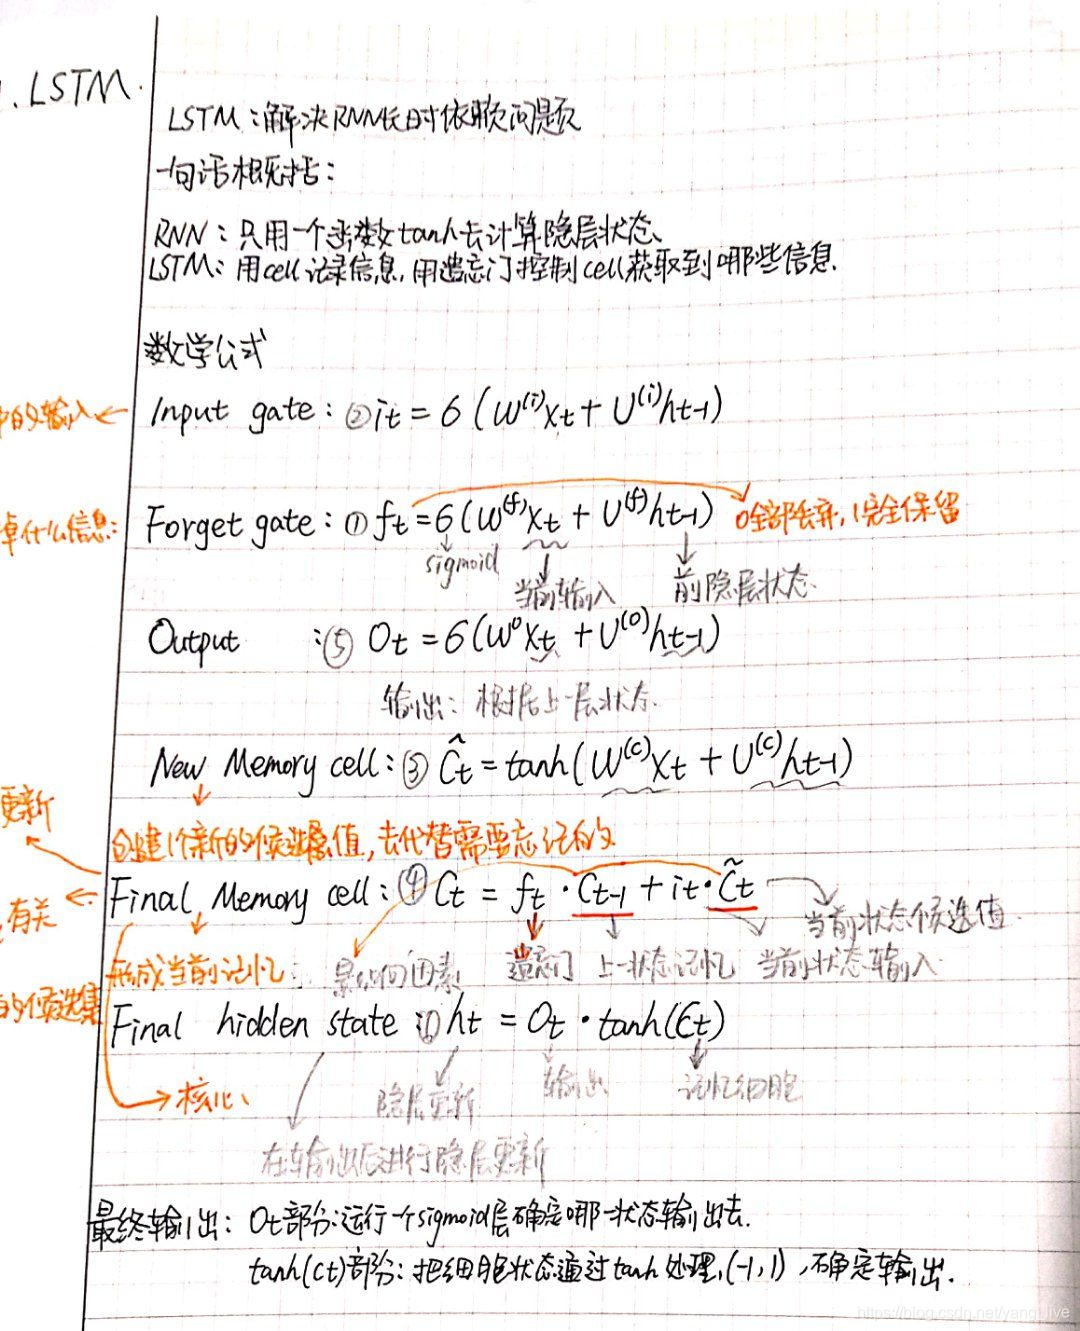 1. LSTM.
LSTM：解决RNN长时依赖问题
一句话概括：
RNN：只用一个函数tanh去计算隐层状态、
LSTM：用cell记录信息，用遗忘门控制cell获取到哪些信息.
数学公式
的输入 ← Input gate：② it = б (W⁽ⁱ⁾xt + U⁽ⁱ⁾ht-1)
掉什么信息： Forget gate：① ft = б(W⁽ᶠ⁾xt + U⁽ᶠ⁾ht-1) 0全部丢弃，1完全保留
sigmoid 当前输入 前隐层状态.
Output ：⑤ Ot = б(W⁰xt + U⁽⁰⁾ht-1)
输出：根据上一层状态.
New Memory cell：③ Ĉt = tanh(W⁽ᶜ⁾xt + U⁽ᶜ⁾ht-1)
更新
创建1个新的候选值，去代替需要忘记的
Final Memory cell：④ Ct = ft · Ct-1 + it · C̃t
有关 当前状态候选值
形成当前记忆： 影响因素 遗忘门 上一状态记忆 当前状态输入
的候选集 Final hidden state ：⑥ ht = Ot · tanh(Ct)
→ 核心、 隐层更新 输出 记忆细胞
在输出后进行隐层更新
最终输出：Ot部分：运行一个sigmoid层确定哪一状态输出去.
tanh(Ct)部分：把细胞状态通过tanh处理，(-1,1)，确定输出.
https://blog.csdn.net/yangf.live